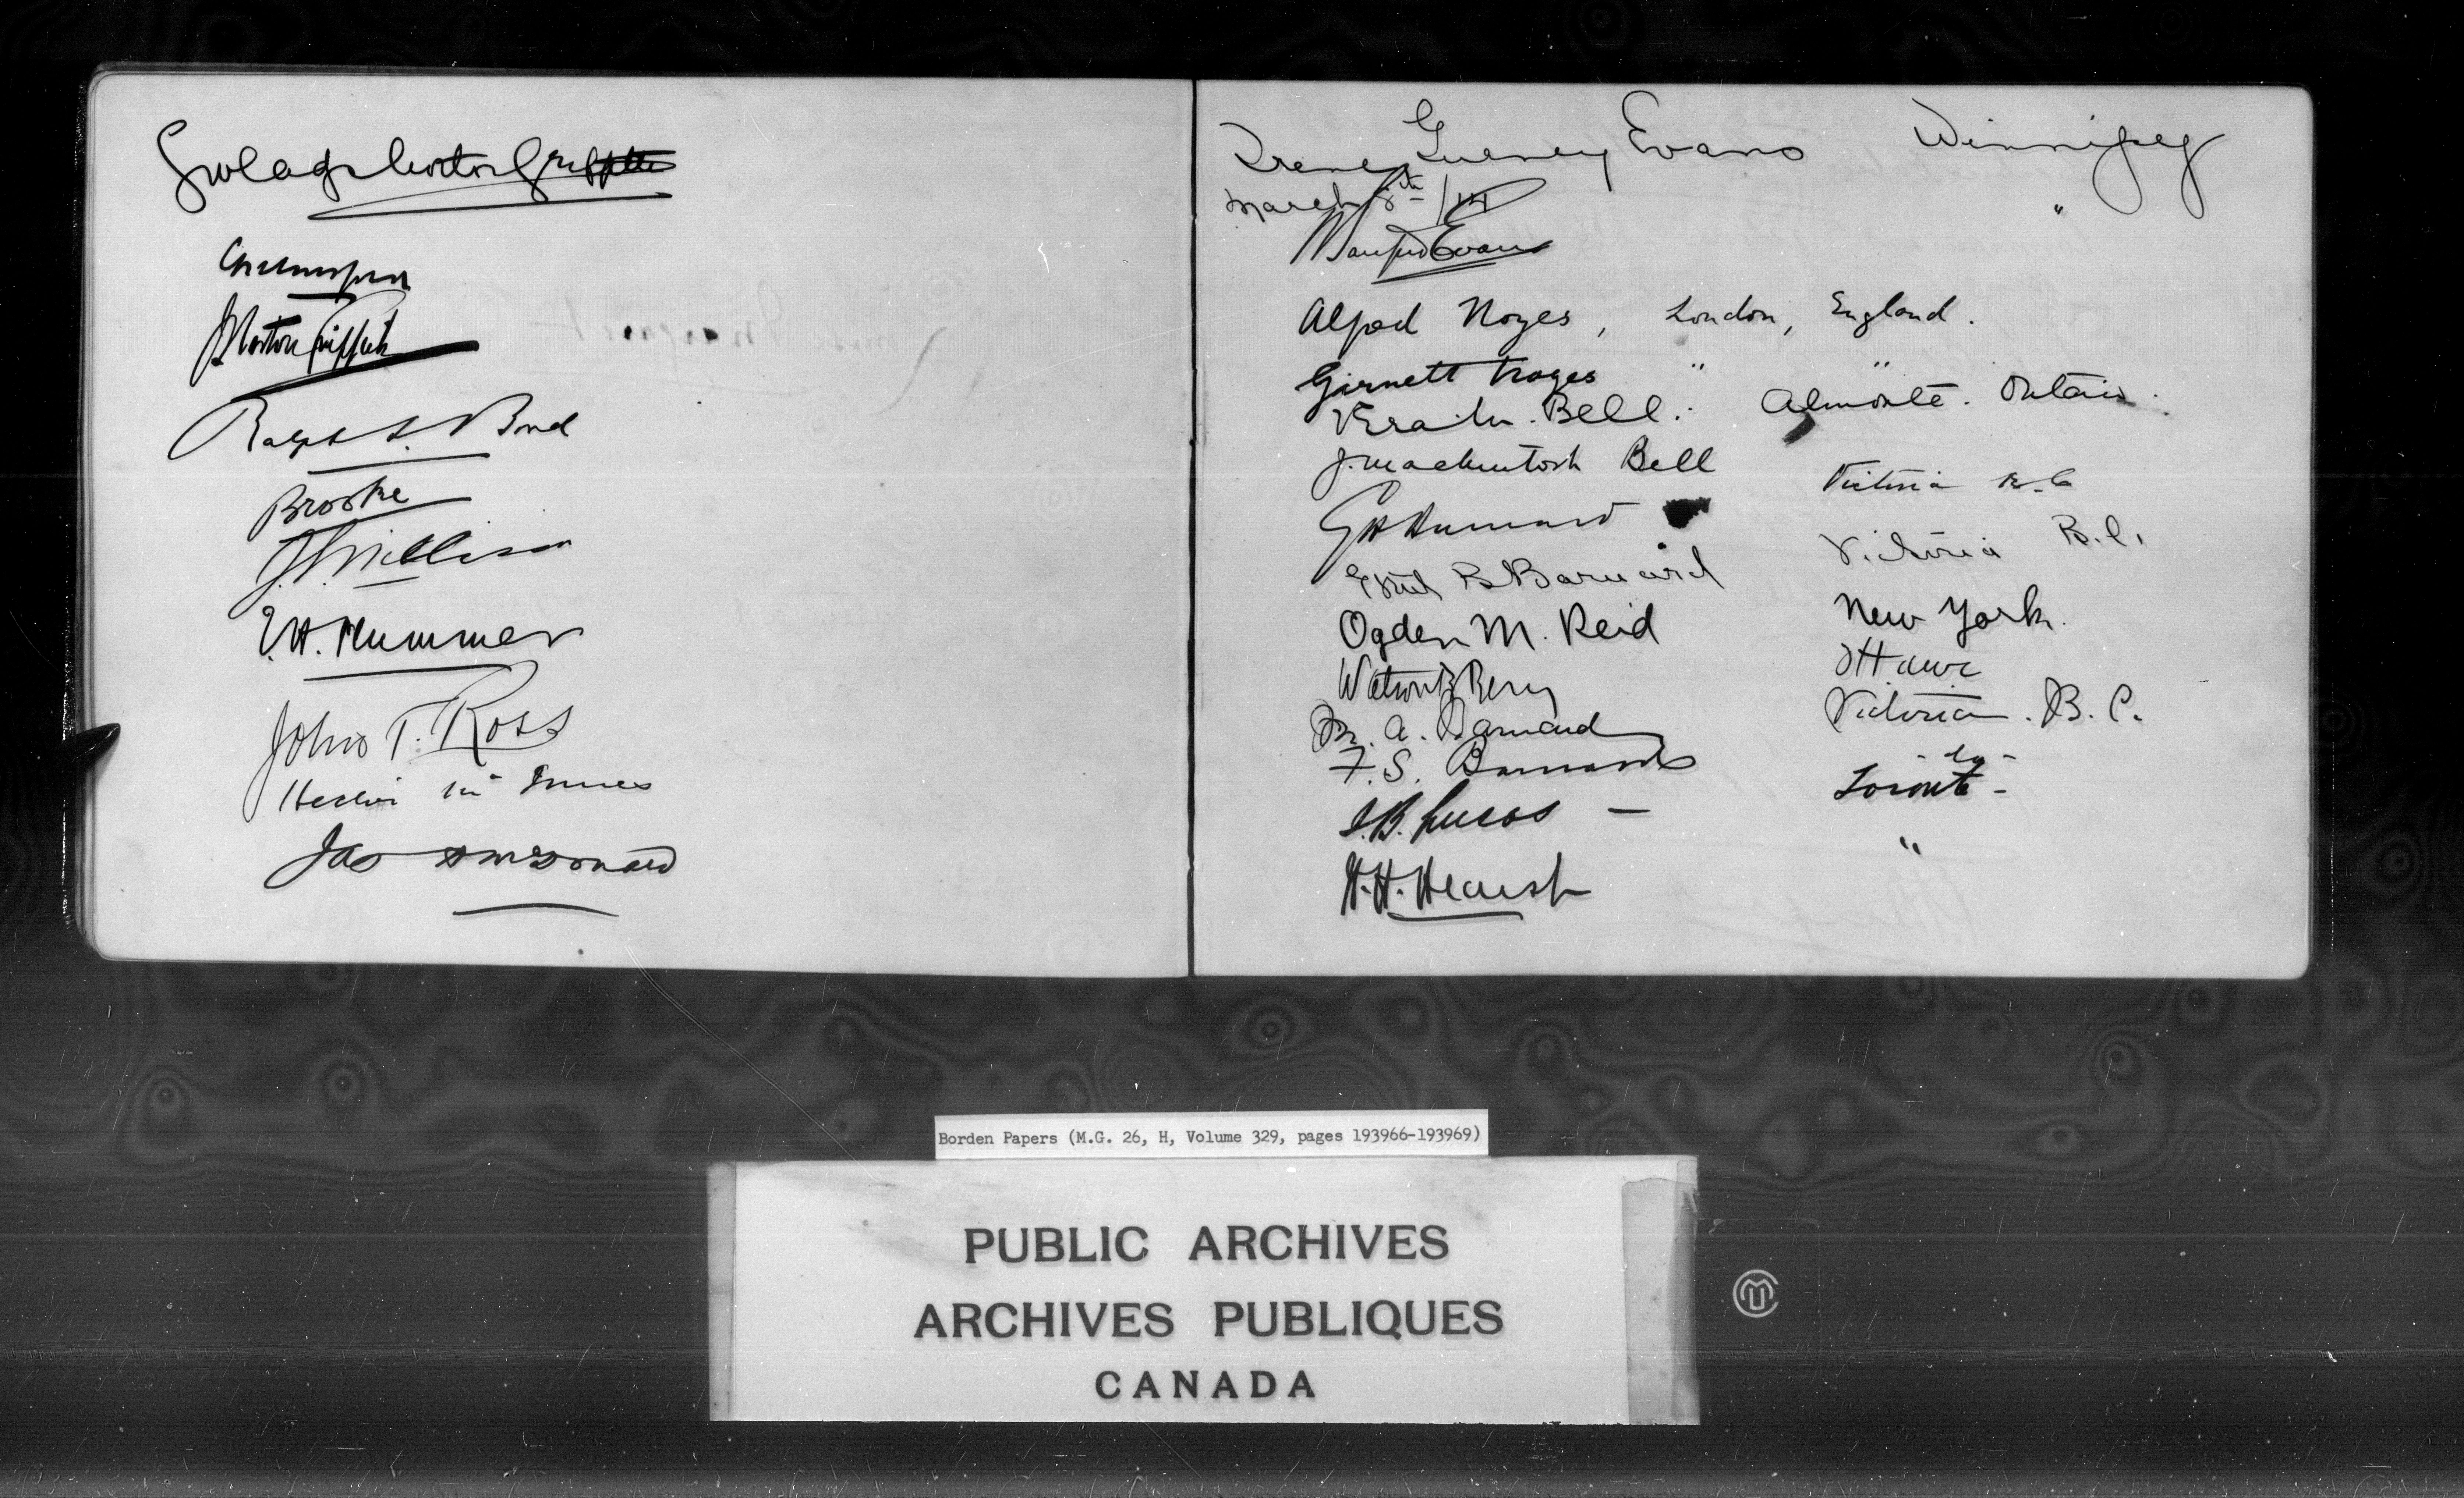 Gwladys Norton Griffiths
J Norton Griffiths
Ralph L. Bond
Brooke
J. S. Willison
E. H. Plummer
John T. Ross
Hector McInnes
Jas
Irene Gurney Evans Winnipeg
March 8th/14 "
Sanford Evans
Alfred Noyes, London, England.
Garnett Noyes " "
Vera M. Bell. Almonte. Ontario.
J. Mackintosh Bell
G H Barnard Victoria B.C
Ethel B Barnard Victoria B.C.
Ogden M. Reid New York.
Watson B Berry Ottawa
M. A. Barnard Victoria. B.C.
F. S. Barnard - do -
I. B. Lucas - Toronto -
W. H. Hearst "
Borden Papers (M.G. 26, H, Volume 329, pages 193966-193969)
PUBLIC ARCHIVES
ARCHIVES PUBLIQUES
CANADA